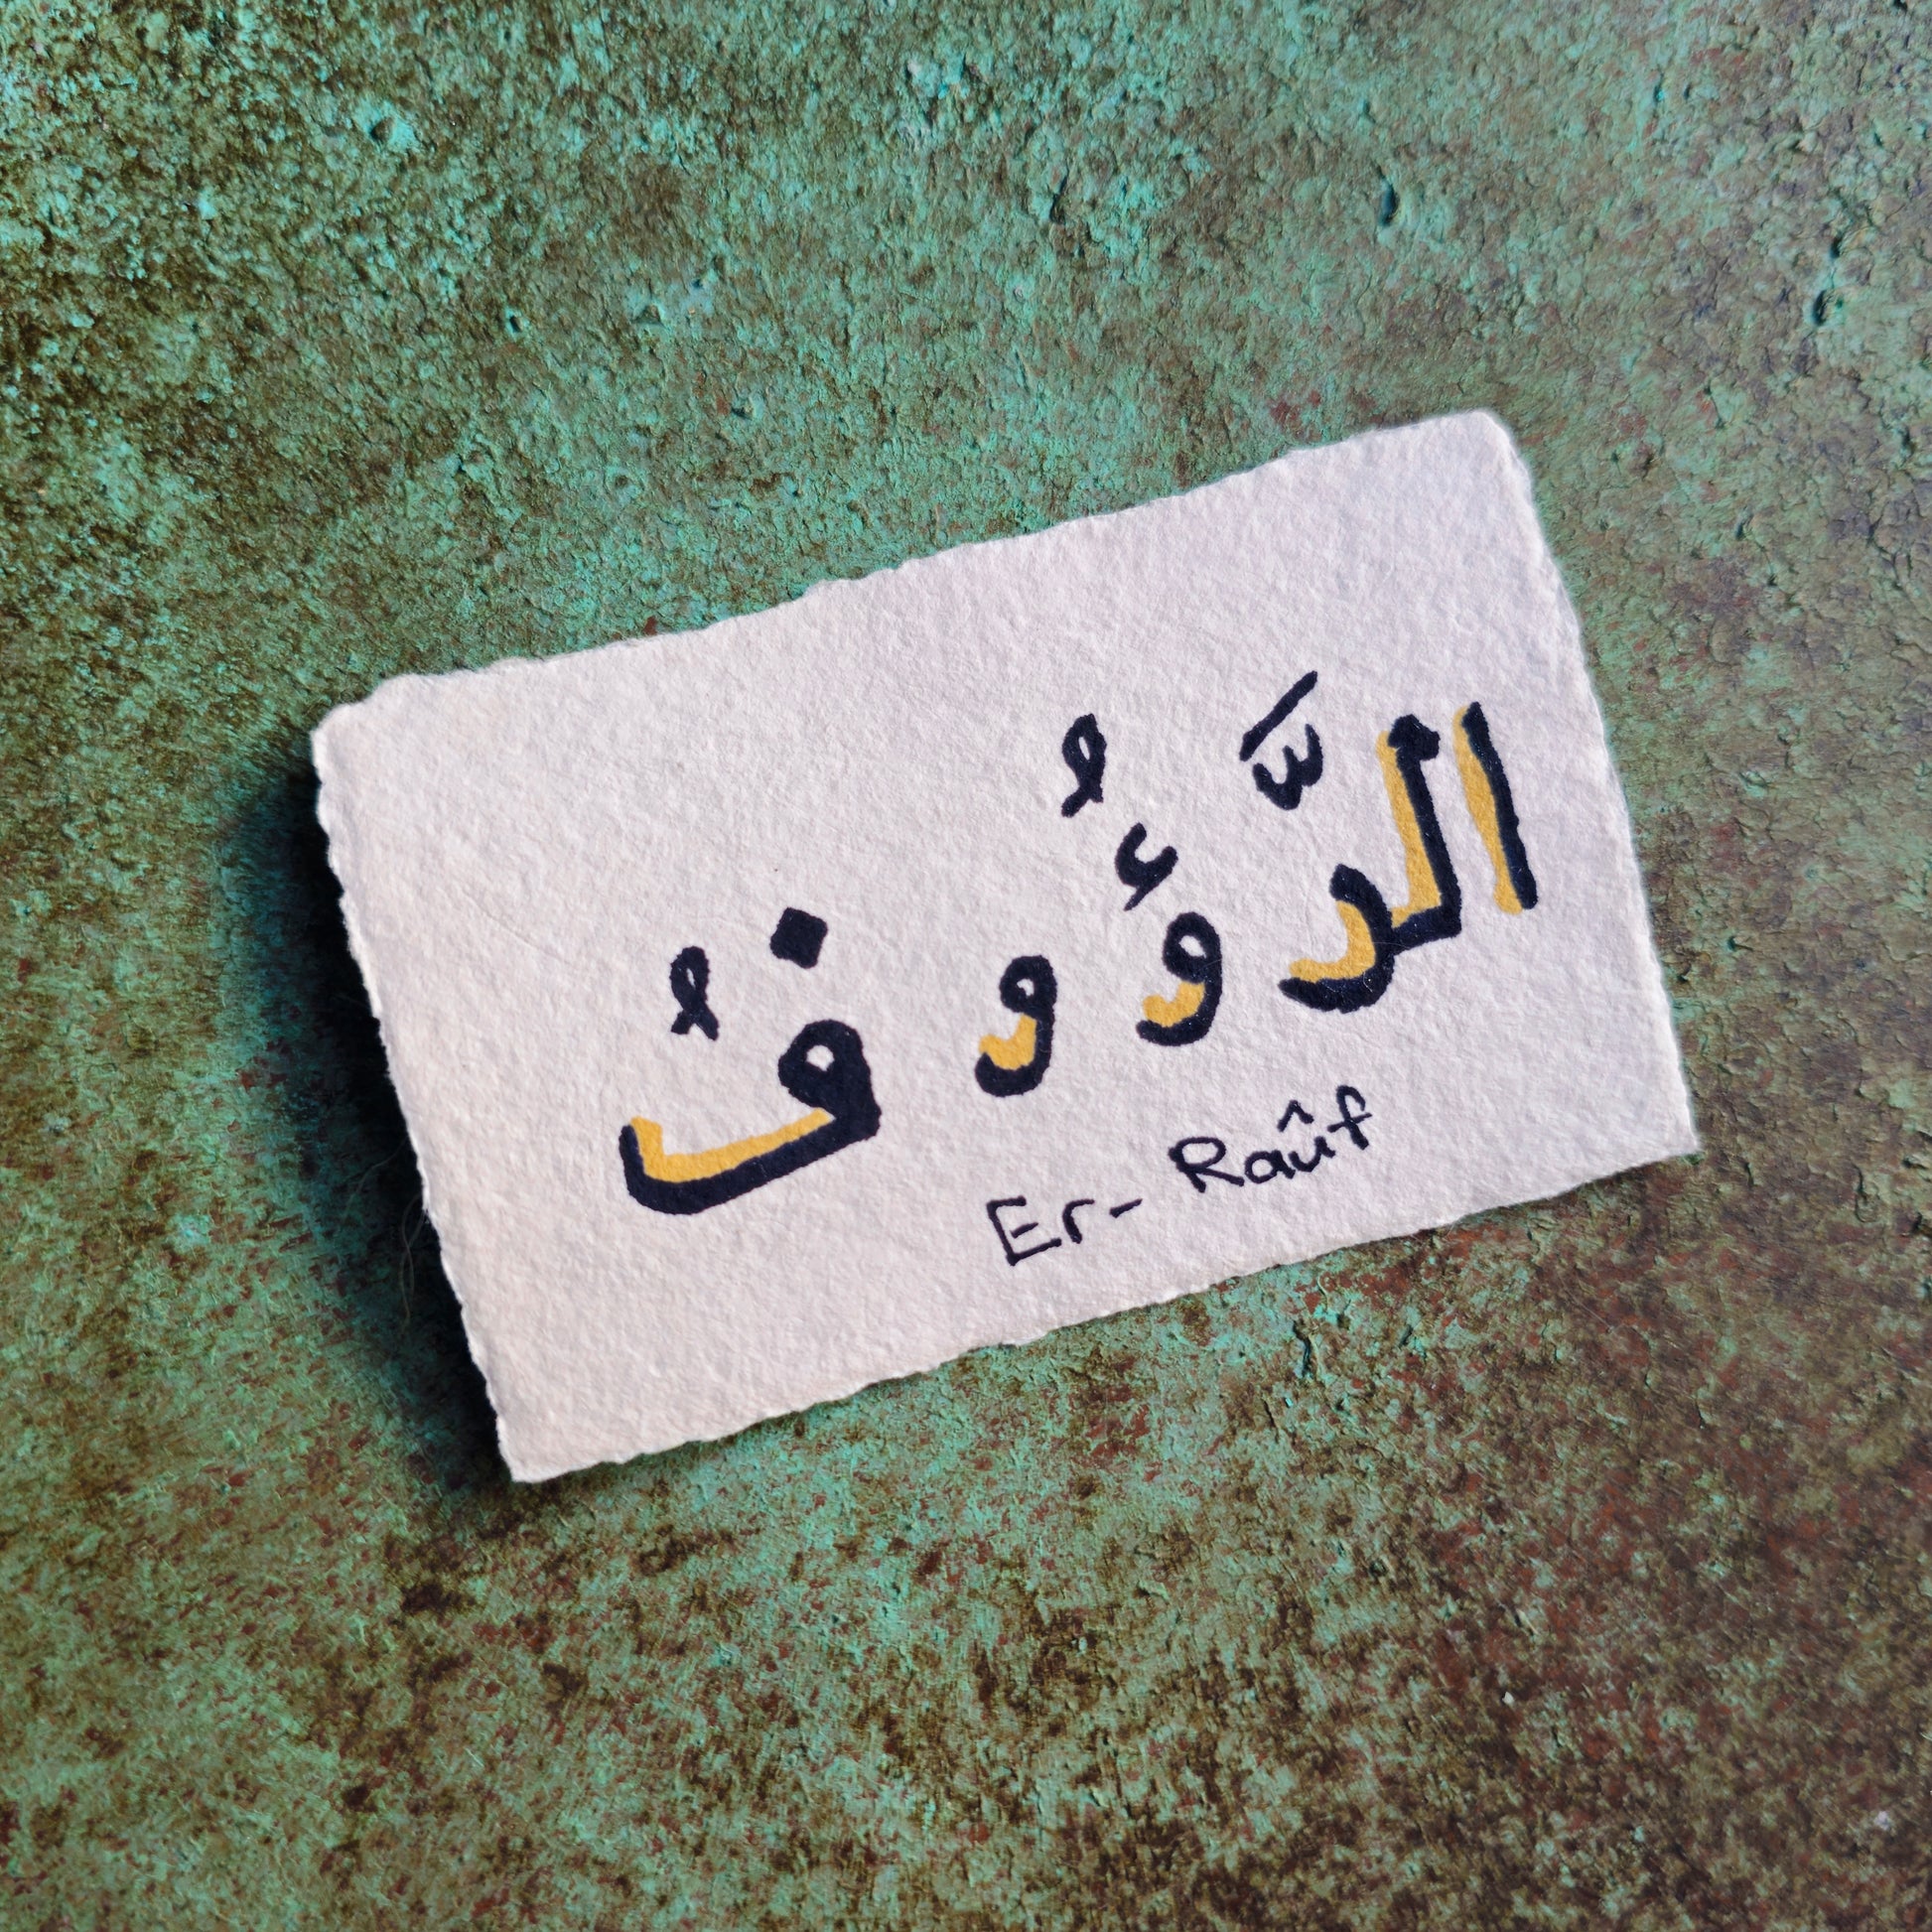 الرَّؤُوفُ
Er- Raûf